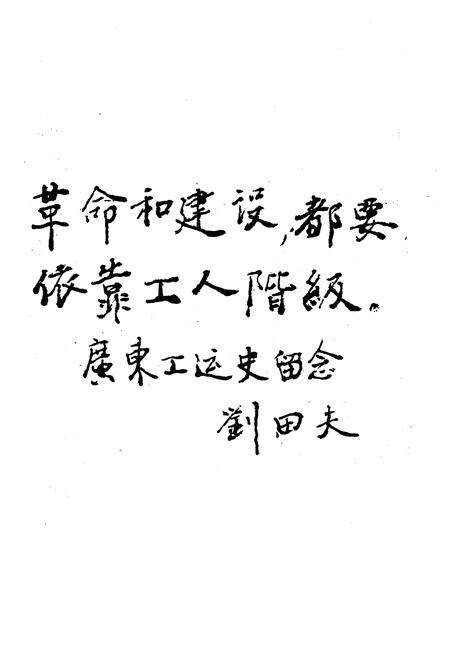 革命和建设,都要
依靠工人階級。
廣東工运史留念
劉田夫